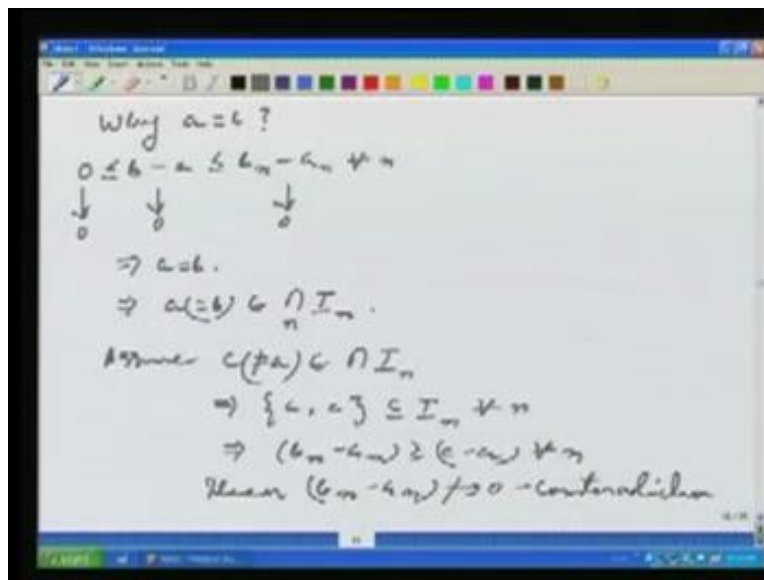 Why a = b ?
0 ≤ b - a ≤ b_n - a_n ∀ n
↓ ↓ ↓
0 0 0
⇒ a = b.
⇒ a(=b) ∈ ∩_n I_n.
Assume c(≠a) ∈ ∩ I_n
⇒ {a, c} ⊆ I_n ∀ n
⇒ (b_n - a_n) ≥ (c - a) ∀ n
Hence (b_n - a_n) ↛ 0 - contradiction